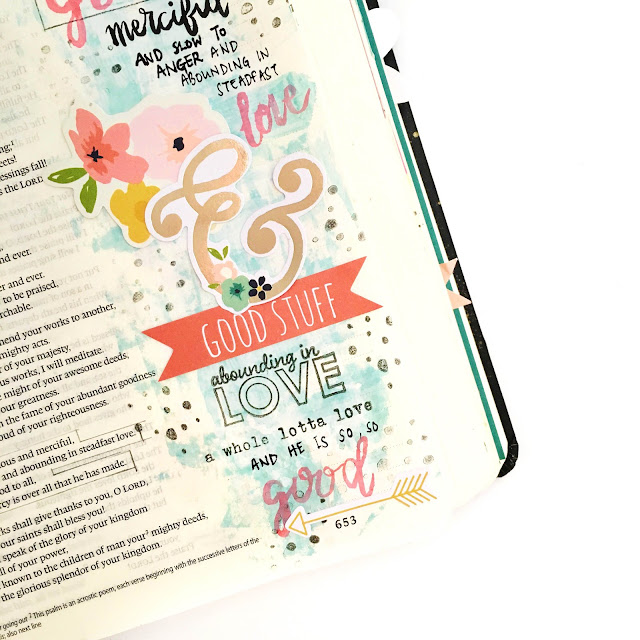 merciful
AND SLOW TO
ANGER AND
ABOUNDING IN
STEADFAST
love
&
GOOD STUFF
abounding in
LOVE
a whole lotta love
AND HE IS SO, SO
good
653
eets!
essings fall!
s the LORD.
d ever.
er and ever.
to be praised,
rchable.
mend your works to another,
mighty acts.
r of your majesty,
us works, I will meditate.
e might of your awesome deeds,
your greatness.
h the fame of your abundant goodness
oud of your righteousness.
ous and merciful,
and abounding in steadfast love.
od to all,
rcy is over all that he has made.
rks shall give thanks to you, O LORD,
our saints shall bless you!
speak of the glory of your kingdom
ll of your power,
known to the children of man your³ mighty deeds,
the glorious splendor of your kingdom.
going out ² This psalm is an acrostic poem, each verse beginning with the successive letters of the
s; also next line